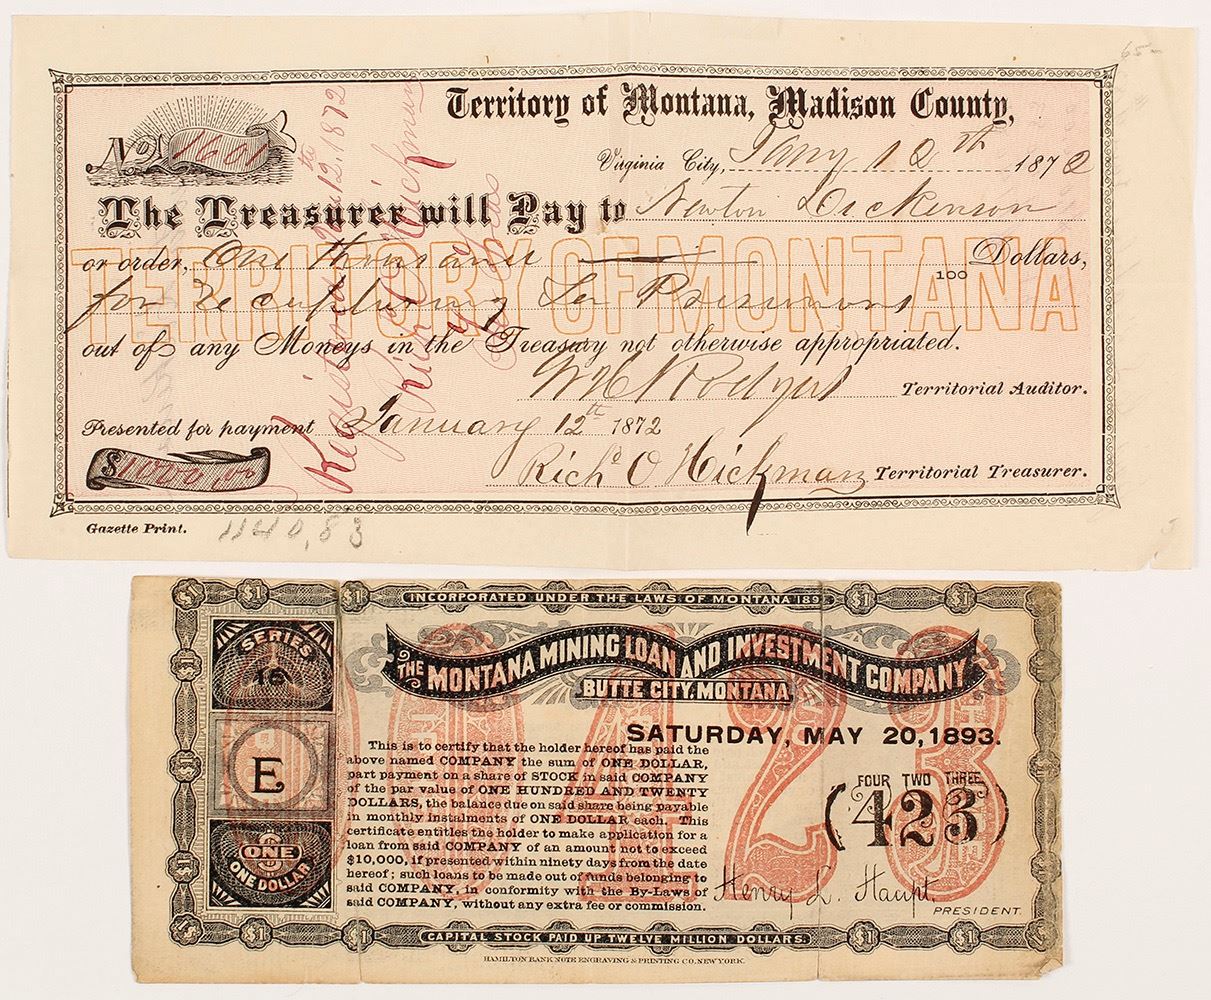 65-
Territory of Montana, Madison County,
No. 1601
Virginia City, Jany 12th 1872
The Treasurer will Pay to Newton Dickenson
or order, One thousand 100 Dollars,
for Recapturing Ten Prisoners
TERRITORY OF MONTANA
out of any Moneys in the Treasury not otherwise appropriated.
Territorial Auditor.
Presented for payment January 12th 1872
$1,000.00
Richd O Hickman Territorial Treasurer.
Registered Jan 12th, 1872
Richd O Hickman
Gazette Print.
1140,83
INCORPORATED UNDER THE LAWS OF MONTANA 189
$1 $1 $1 $1 $1
SERIES
16
THE MONTANA MINING LOAN AND INVESTMENT COMPANY
BUTTE CITY, MONTANA
E
SATURDAY, MAY 20, 1893.
This is to certify that the holder hereof has paid the
above named COMPANY the sum of ONE DOLLAR,
part payment on a share of STOCK in said COMPANY
of the par value of ONE HUNDRED AND TWENTY
DOLLARS, the balance due on said share being payable
in monthly instalments of ONE DOLLAR each. This
certificate entitles the holder to make application for a
loan from said COMPANY of an amount not to exceed
$10,000, if presented within ninety days from the date
hereof; such loans to be made out of funds belonging to
said COMPANY, in conformity with the By-Laws of
said COMPANY, without any extra fee or commission.
FOUR TWO THREE
(423)
423
$
ONE
ONE DOLLAR
Henry L. Haupt.
PRESIDENT.
$1 $1 $1 $1
CAPITAL STOCK PAID UP TWELVE MILLION DOLLARS.
HAMILTON BANK NOTE ENGRAVING & PRINTING CO. NEW YORK.